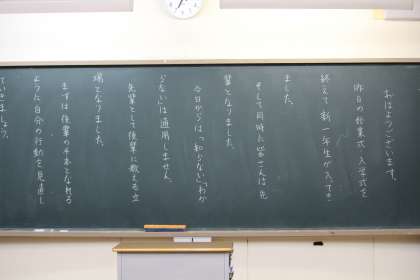 おはようございます。
昨日の始業式、入学式を
終えて新一年生が入ってき
ました。
そして同時に皆さんは先
輩となりました。
今日からは「知らない」「わか
らない」は通用しません。
先輩として後輩に教える立
場となりました。
まずは後輩の手本となれる
ように自分の行動を見直し
ていきましょう。